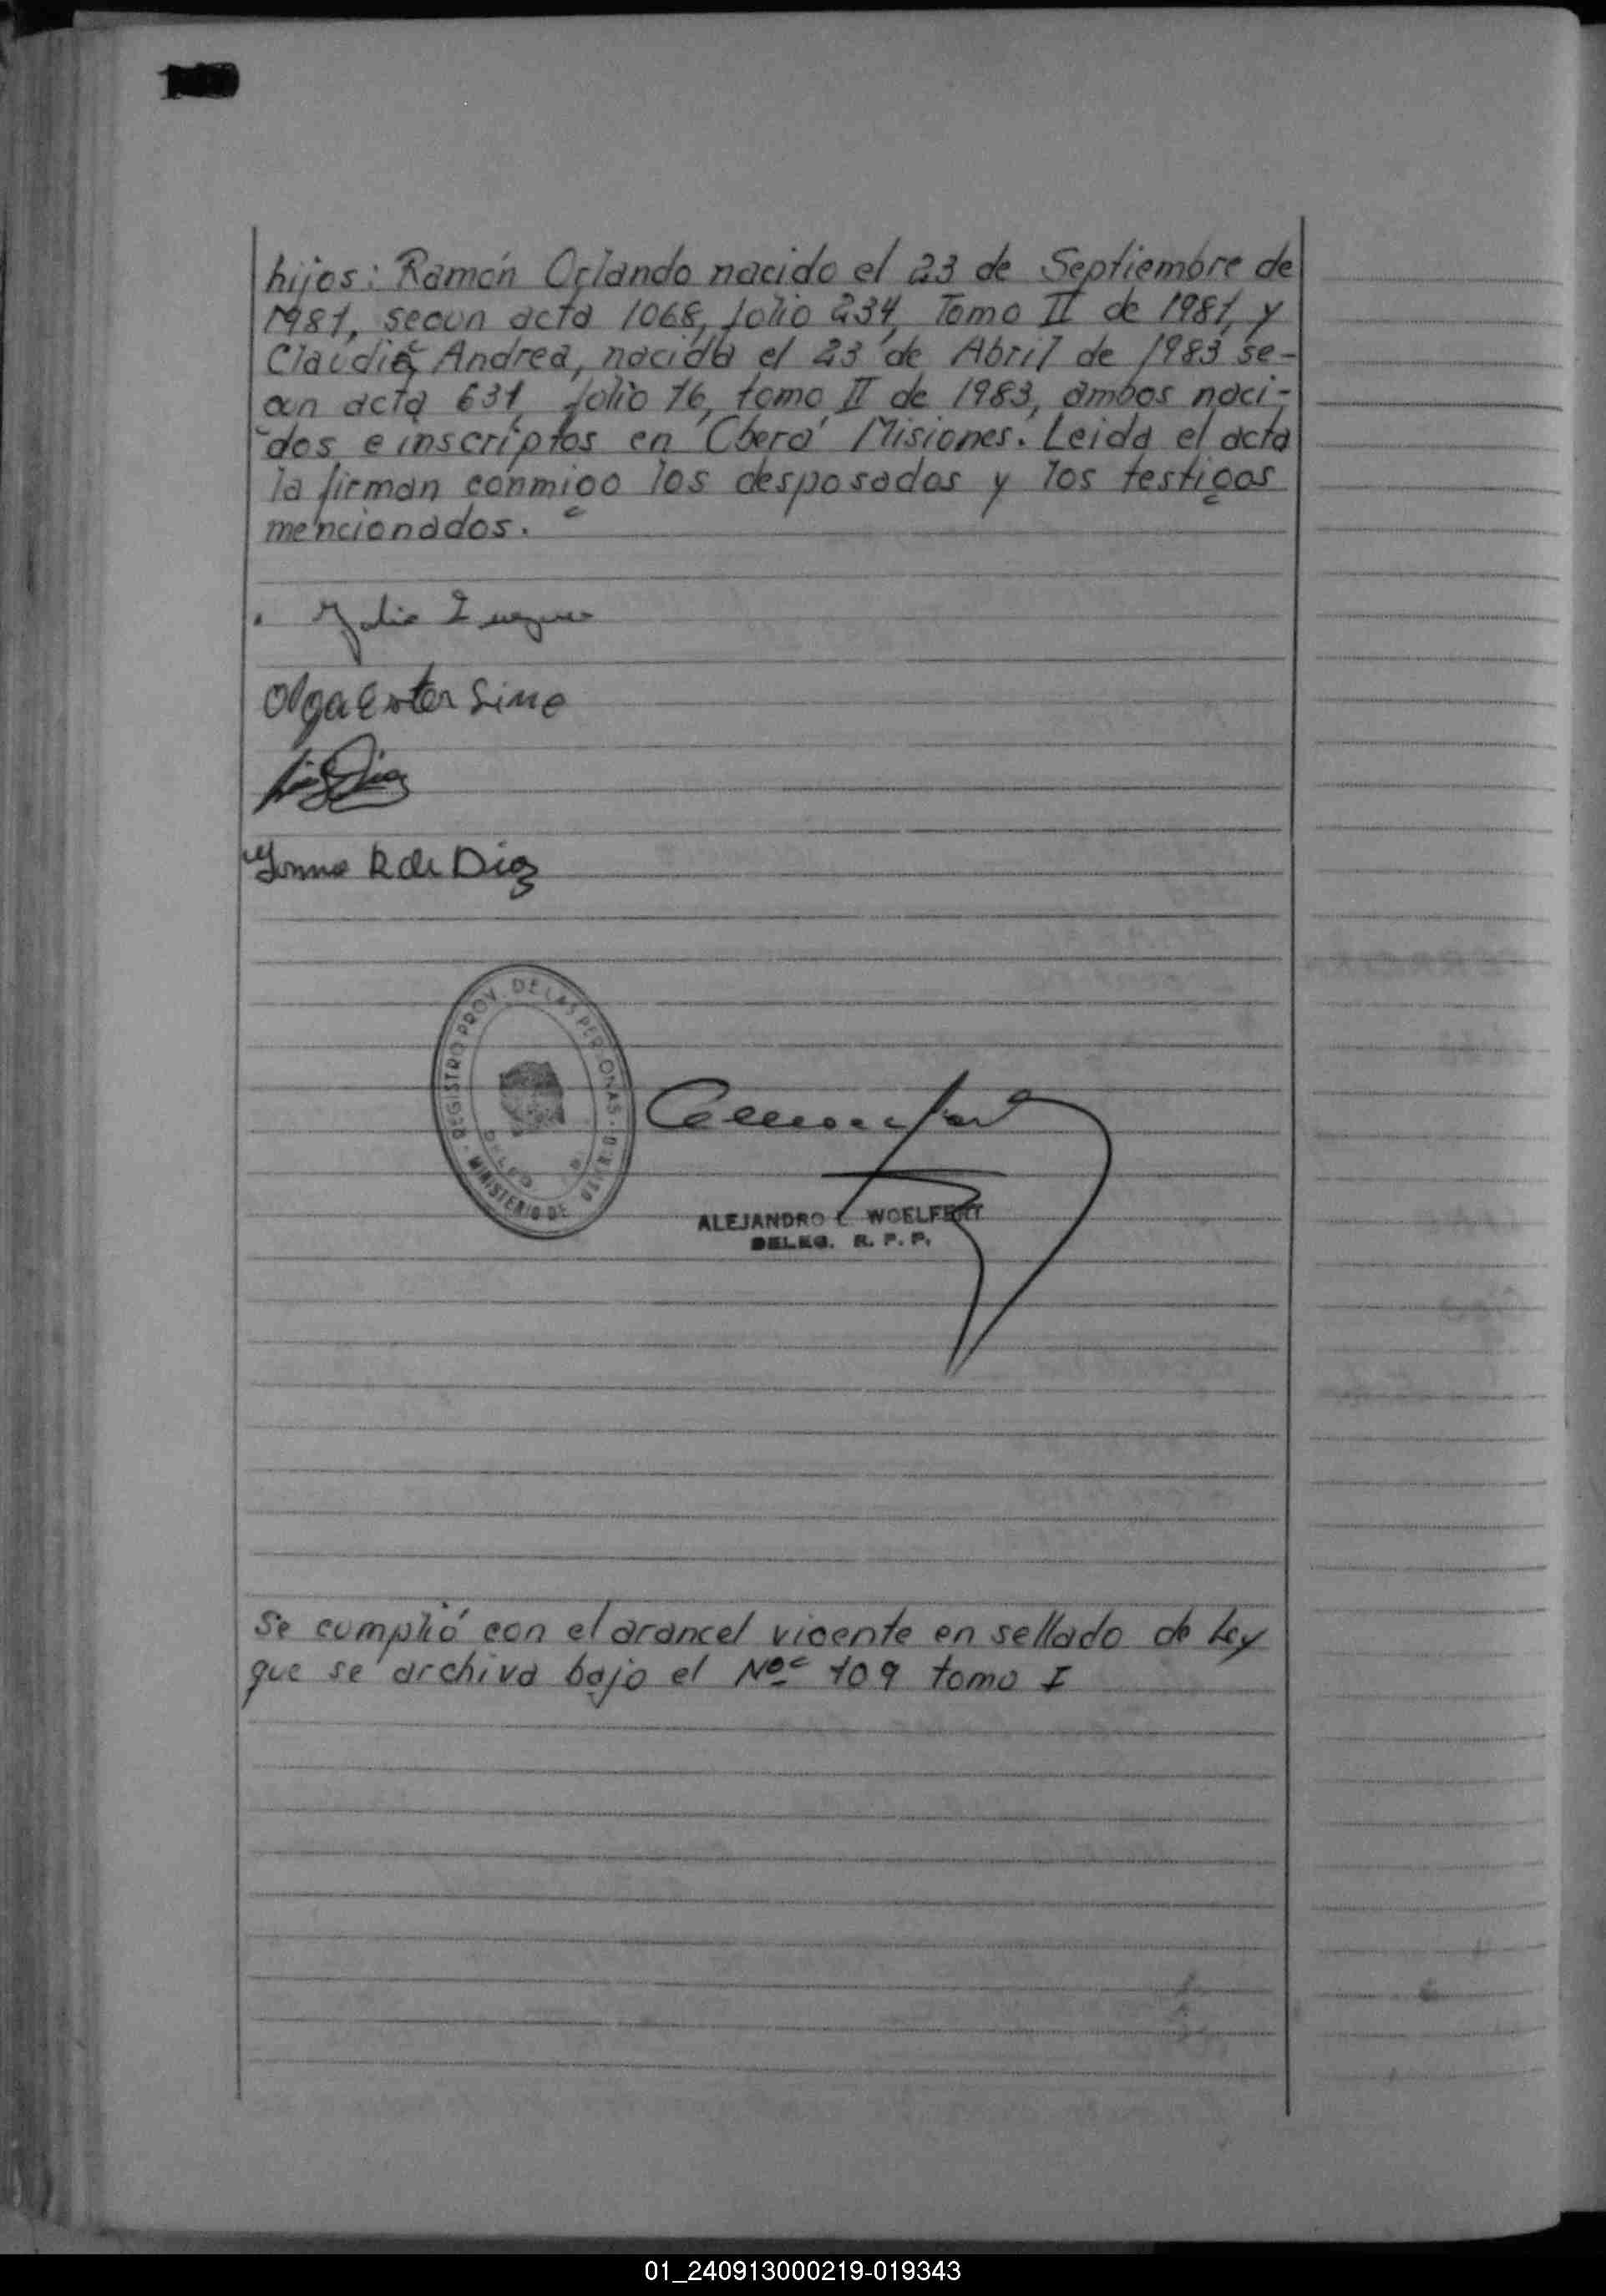 hijos: Ramón Orlando nacido el 23 de Septiembre de
1981, segun acta 1068, folio 234, Tomo II de 1981, y
Claudia Andrea, nacida el 23 de Abril de 1983 se-
gun acta 631, folio 76, tomo II de 1983, ambos naci-
dos e inscriptos en Oberá Misiones. Leida el acta
la firman conmigo los desposados y los testigos
mencionados.
Olga Ester Lima
R de Díaz
REGISTRO PROV. DE LAS PERSONAS
MINISTERIO DE
ALEJANDRO E. WOELFERT
DELEG. R. P. P.
Se cumplió con el arancel vigente en sellado de Ley
que se archiva bajo el Nº 109 tomo I
01_240913000219-019343